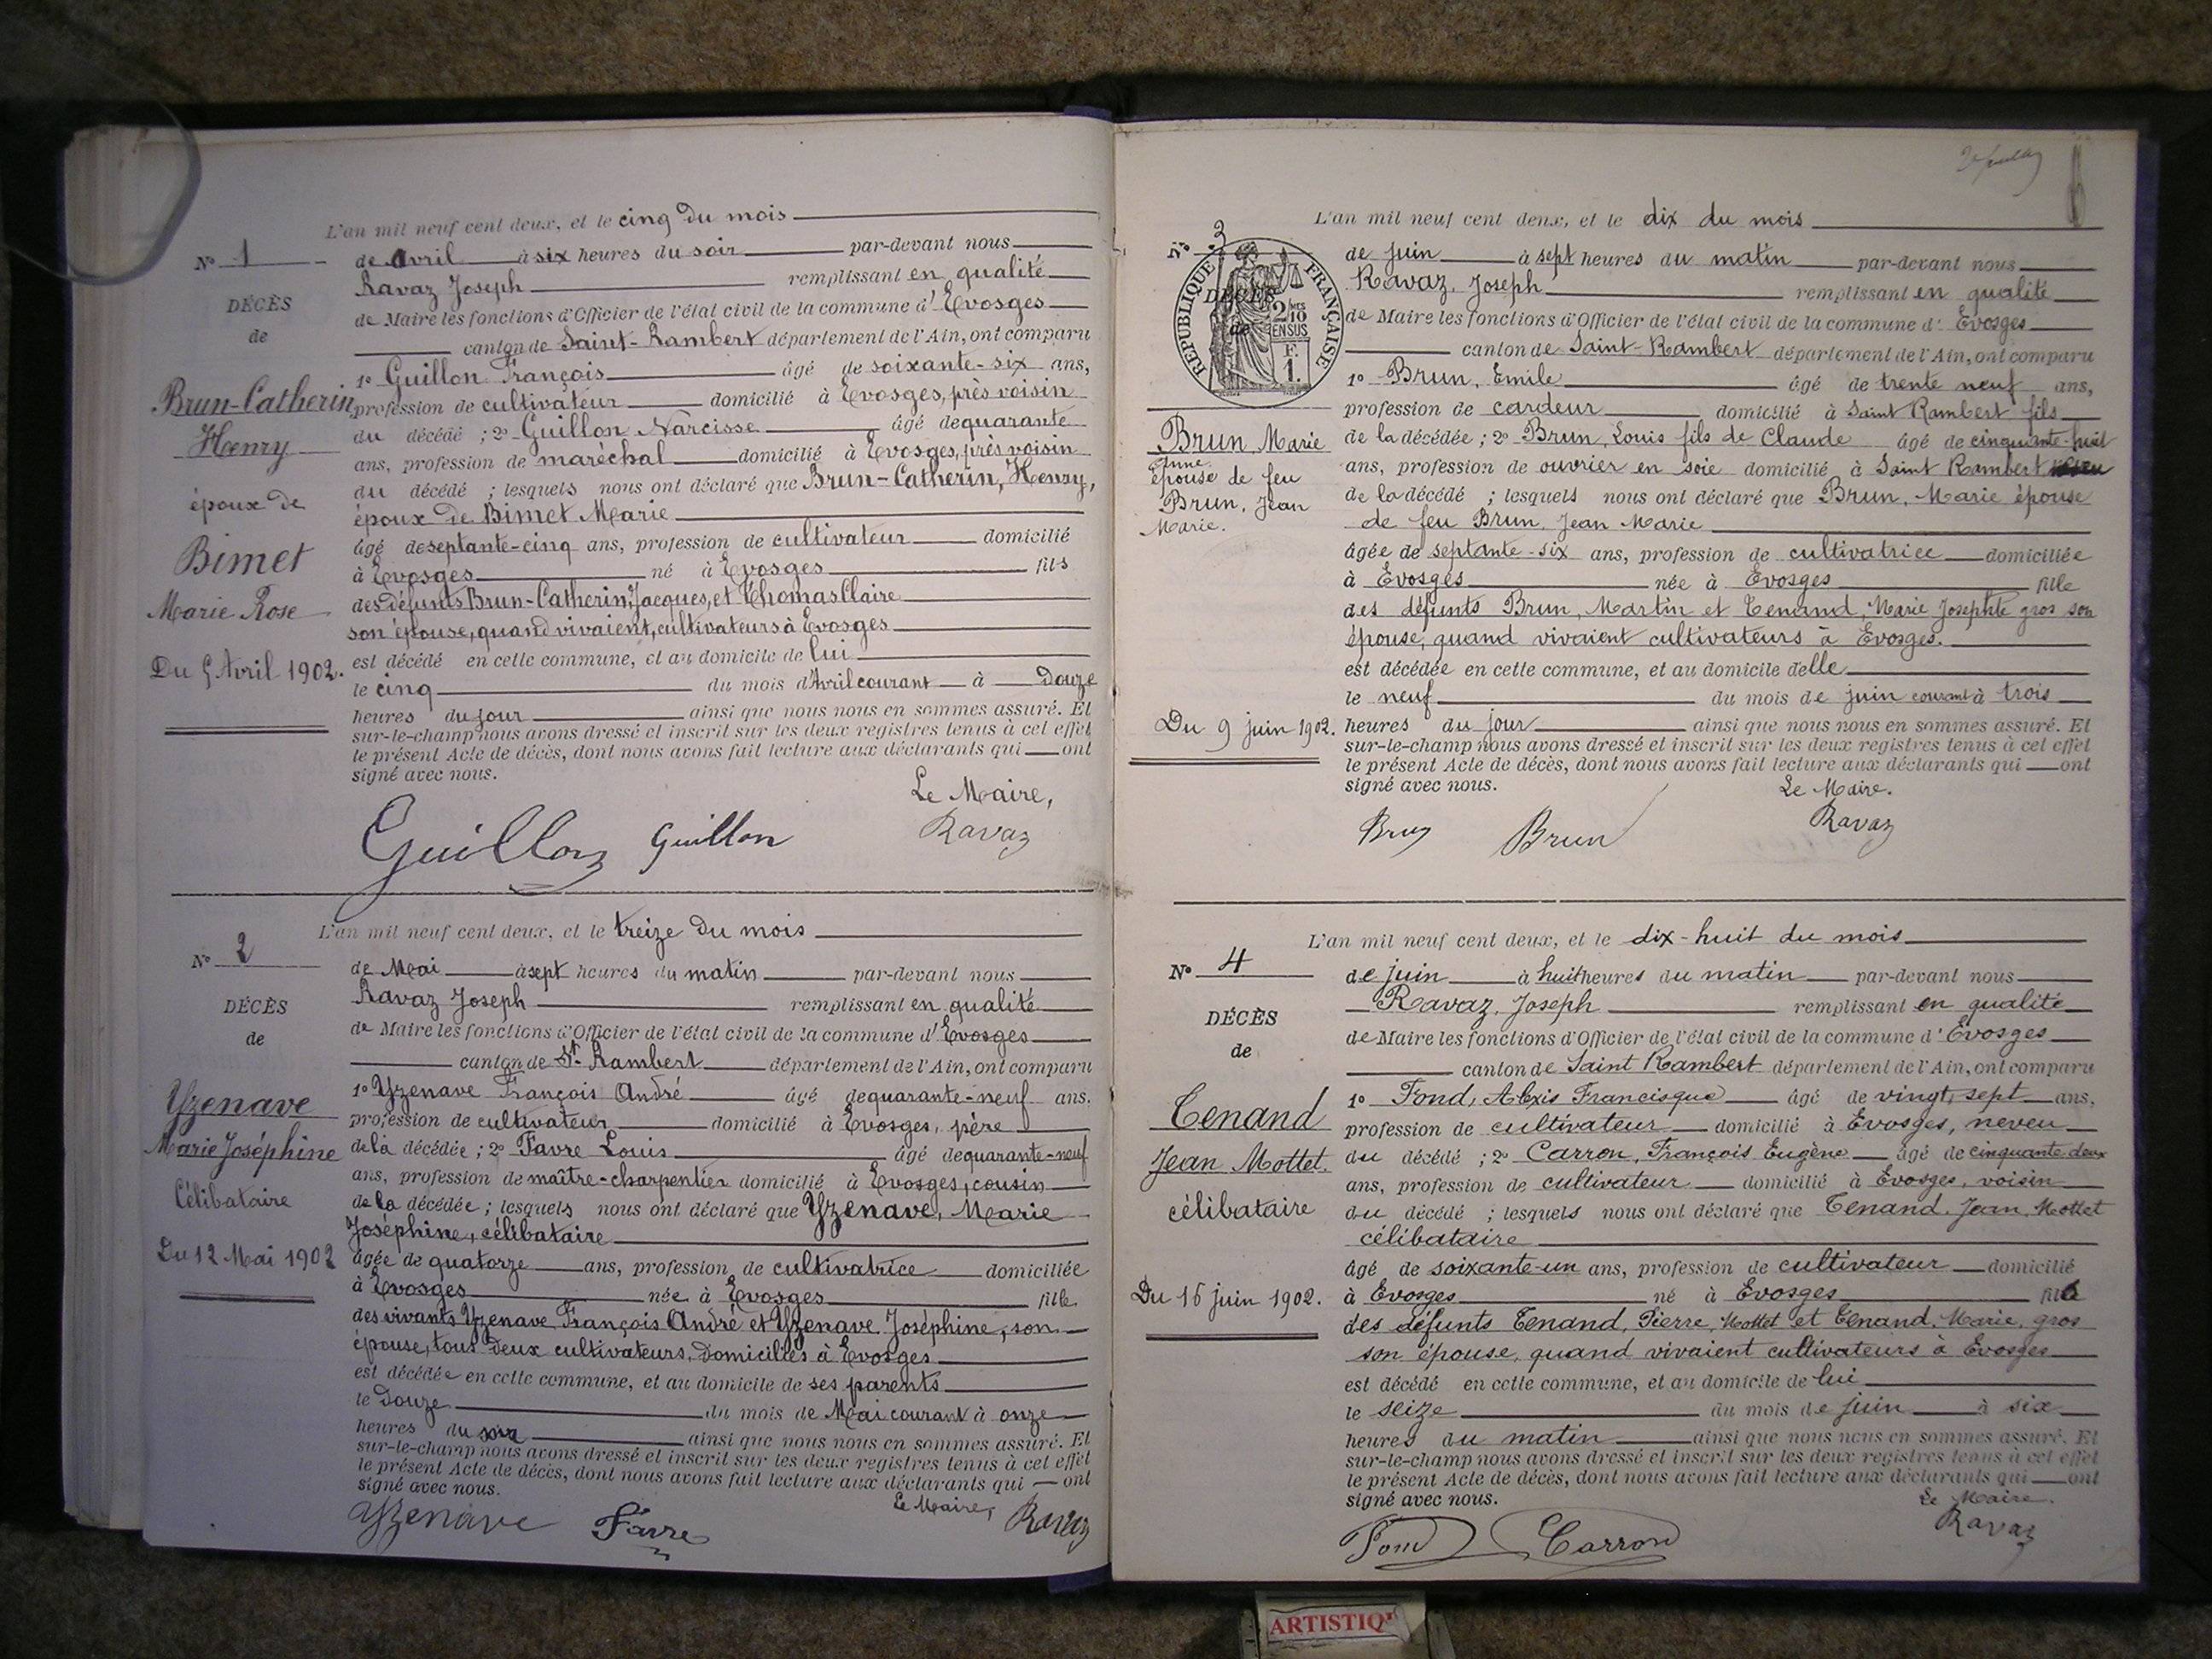 L'an mil neuf cent deux, et le cinq du mois
N° 1
de Avril à six heures du soir par-devant nous
Ravaz Joseph remplissant en qualité
DÉCÈS
de Maire les fonctions d'Officier de l'état civil de la commune d'Evosges
de
canton de Saint-Rambert département de l'Ain, ont comparu
1° Guillon François âgé de soixante-six ans,
Brun-Catherin
profession de cultivateur domicilié à Evosges, près voisin
Henry
du décédé ; 2° Guillon Narcisse âgé de quarante
ans, profession de maréchal domicilié à Evosges, près voisin
du décédé ; lesquels nous ont déclaré que Brun-Catherin, Henry,
époux de
époux de Bimet Marie
Bimet
âgé de septante-cinq ans, profession de cultivateur domicilié
à Evosges né à Evosges fils
Marie Rose
des défunts Brun-Catherin, Jacques, et Thomas Claire
son épouse, quand vivaient, cultivateurs à Evosges
Du 5 Avril 1902.
est décédé en cette commune, et au domicile de lui
le cinq du mois d'Avril courant à douze
heures du jour ainsi que nous nous en sommes assuré. Et
sur-le-champ nous avons dressé et inscrit sur les deux registres tenus à cet effet
le présent Acte de décès, dont nous avons fait lecture aux déclarants qui ont
signé avec nous.
Le Maire,
Guillon Guillon Ravaz
L'an mil neuf cent deux, et le treize du mois
N° 2
de Mai à sept heures du matin par-devant nous
Ravaz Joseph remplissant en qualité
DÉCÈS
de Maire les fonctions d'Officier de l'état civil de la commune d'Evosges
de
canton de St Rambert département de l'Ain, ont comparu
1° Yzenave François André âgé de quarante-neuf ans.
Yzenave
profession de cultivateur domicilié à Evosges, père
Marie Joséphine
de la décédée ; 2° Favre Louis âgé de quarante-neuf
ans, profession de maître-charpentier domicilié à Evosges, cousin
Célibataire
de la décédée ; lesquels nous ont déclaré que Yzenave, Marie
Joséphine, célibataire
Du 12 Mai 1902
âgée de quatorze ans, profession de cultivatrice domiciliée
à Evosges née à Evosges fille
des vivants Yzenave François André et Yzenave Joséphine, son
épouse, tous deux cultivateurs, domiciliés à Evosges
est décédée en cette commune, et au domicile de ses parents
le douze du mois de Mai courant à onze
heures du soir ainsi que nous nous en sommes assuré. Et
sur-le-champ nous avons dressé et inscrit sur les deux registres tenus à cet effet
le présent Acte de décès, dont nous avons fait lecture aux déclarants qui ont
signé avec nous.
Le Maire,
Yzenave Favre Ravaz
L'an mil neuf cent deux, et le dix du mois
N° 3
de juin à sept heures du matin par-devant nous
Ravaz, Joseph remplissant en qualité
DÉCÈS
de
RÉPUBLIQUE FRANÇAISE
2/10 MES
EN SUS
F.
1.
de Maire les fonctions d'Officier de l'état civil de la commune d'Evosges
canton de Saint-Rambert département de l'Ain, ont comparu
1° Brun, Emile âgé de trente neuf ans,
profession de cardeur domicilié à Saint Rambert fils
Brun Marie
Anne
épouse de feu
Brun, Jean
Marie.
de la décédée ; 2° Brun, Louis fils de Claude âgé de cinquante-huit
ans, profession de ouvrier en soie domicilié à Saint Rambert
de la décédé ; lesquels nous ont déclaré que Brun, Marie épouse
de feu Brun, Jean Marie
âgée de septante-six ans, profession de cultivatrice domiciliée
à Evosges née à Evosges fille
des défunts Brun, Martin et Tenand, Marie Josephte gros son
épouse, quand vivaient cultivateurs à Evosges.
est décédée en cette commune, et au domicile delle
le neuf du mois de juin courant à trois
Du 9 juin 1902.
heures du jour ainsi que nous nous en sommes assuré. Et
sur-le-champ nous avons dressé et inscrit sur les deux registres tenus à cet effet
le présent Acte de décès, dont nous avons fait lecture aux déclarants qui ont
signé avec nous.
Le Maire.
Brun Brun Ravaz
L'an mil neuf cent deux, et le dix-huit du mois
N° 4
de juin à huit heures du matin par-devant nous
Ravaz, Joseph remplissant en qualité
DÉCÈS
de Maire les fonctions d'Officier de l'état civil de la commune d'Evosges
de
canton de Saint Rambert département de l'Ain, ont comparu
1° Fond, Alexis Francisque âgé de vingt sept ans,
Tenand
profession de cultivateur domicilié à Evosges, neveu
Jean Mottet.
du décédé ; 2° Carron, François Eugène âgé de cinquante deux
ans, profession de cultivateur domicilié à Evosges, voisin
célibataire
du décédé ; lesquels nous ont déclaré que Tenand, Jean Mottet
célibataire
âgé de soixante-un ans, profession de cultivateur domicilié
Du 16 juin 1902.
à Evosges né à Evosges fils
des défunts Tenand, Pierre, Mottet et Tenand, Marie, gros
son épouse, quand vivaient cultivateurs à Evosges
est décédé en cette commune, et au domicile de lui
le seize du mois de juin à six
heures du matin ainsi que nous nous en sommes assuré. Et
sur-le-champ nous avons dressé et inscrit sur les deux registres tenus à cet effet
le présent Acte de décès, dont nous avons fait lecture aux déclarants qui ont
signé avec nous.
Le Maire.
Fond Carron Ravaz
ARTISTIQ